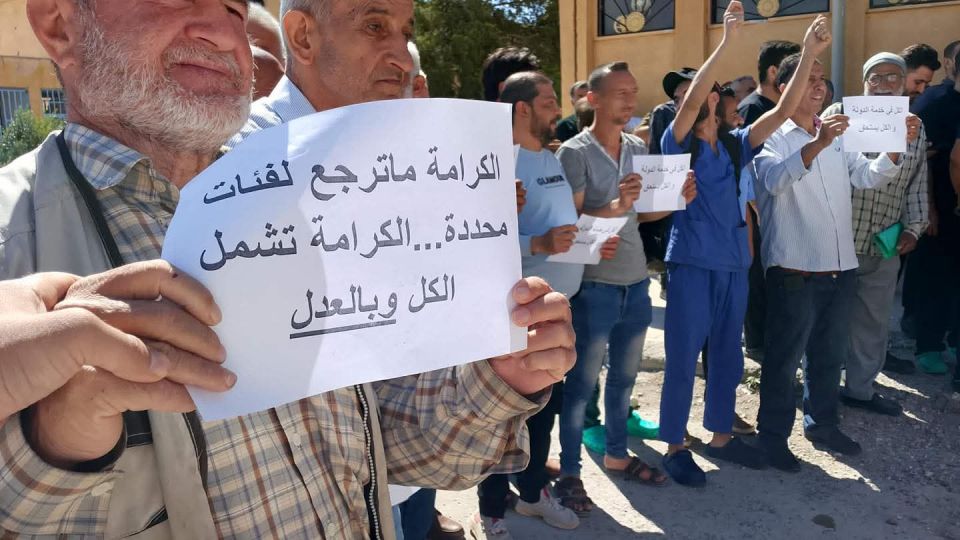 الكرامة ماترجع لفئات
محددة...الكرامة تشمل
الكل وبالعدل
الكل في خدمة الدولة
و الكل يستحق
الكل في خدمة الدولة
و الكل يستحق
GLAMOR